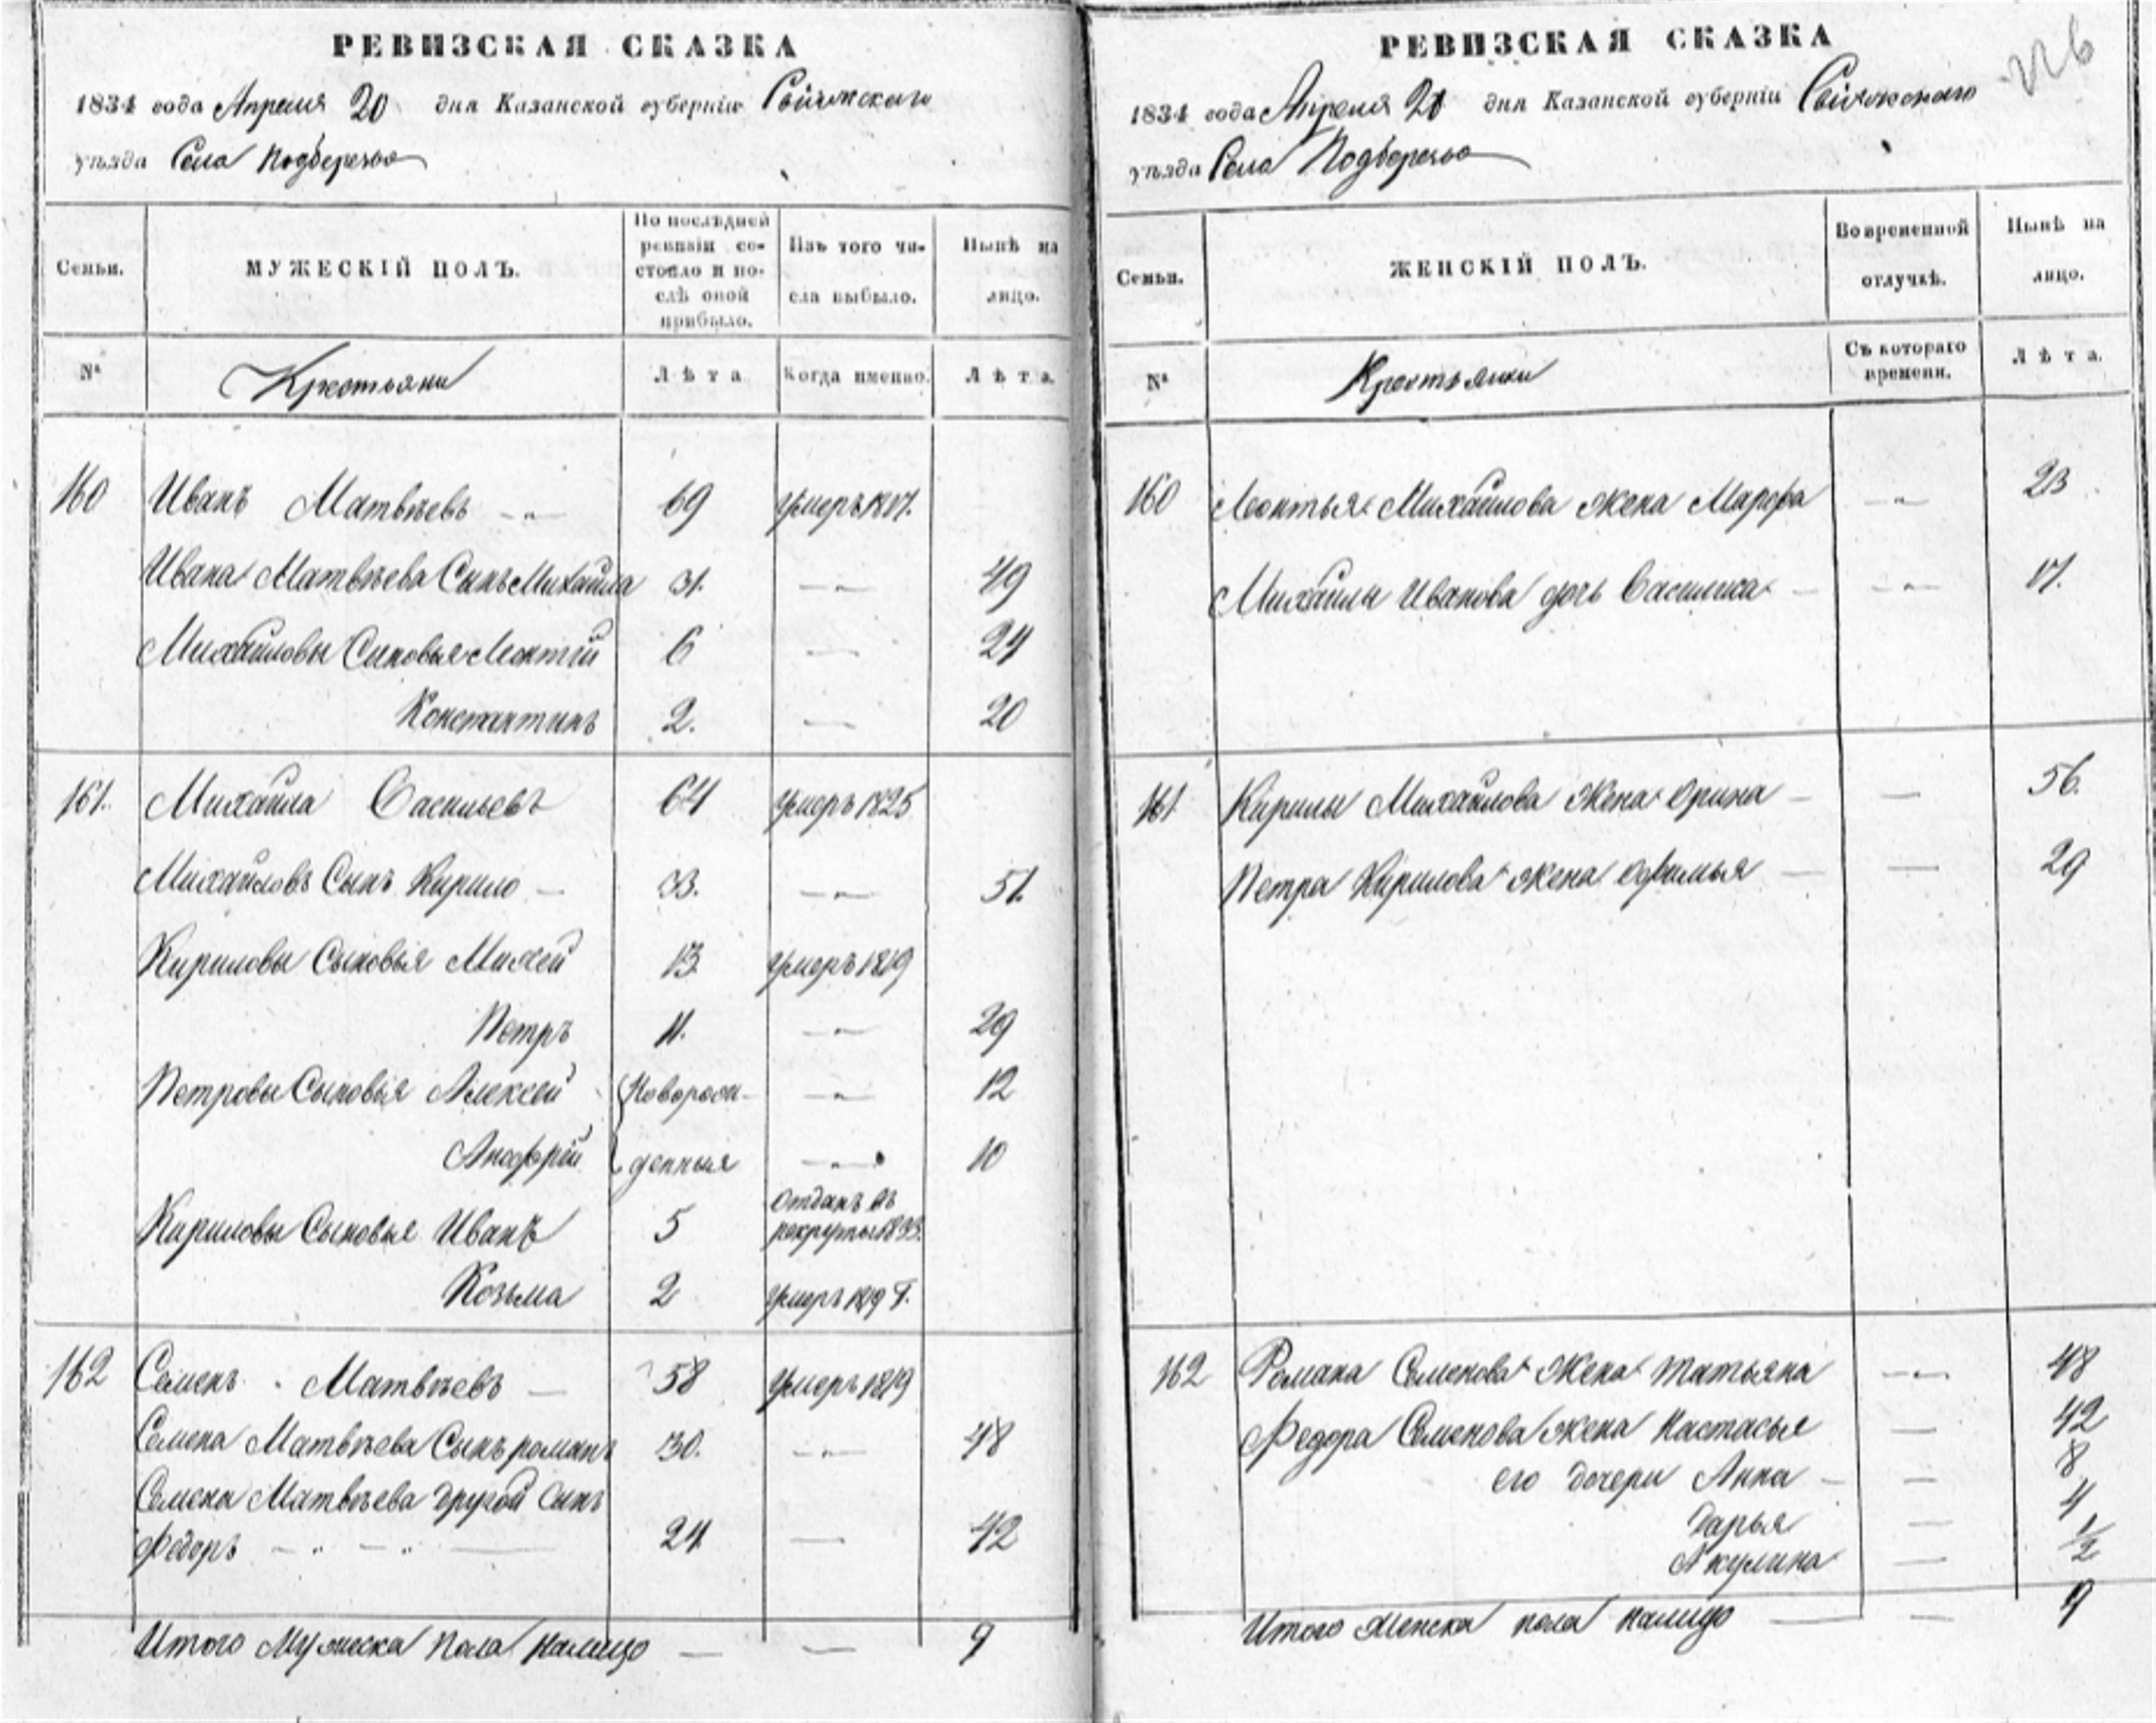 РЕВИЗСКАЯ СКАЗКА
1834 года Апреля 20 дня Казанской губерніи Свіяжскаго
уѣзда Села Подберезья
Семьи.
МУЖЕСКІЙ ПОЛЪ.
По послѣдней
ревизіи со-
стояло и по-
слѣ оной
прибыло.
Изъ того чи-
сла выбыло.
Нынѣ на
лицо.
№
Крестьяни
Лѣта
Когда именно.
Лѣта.
160 Иванъ Матвѣевъ 69 умеръ 1817.
Ивана Матвѣева Сынъ Михайла 31. 49
Михайловы Сыновья Леонтій 6 24
Константинъ 2. 20
161. Михайла Васильевъ 64 умеръ 1825
Михайловъ Сынъ Кирило 33. 51.
Кириловы Сыновья Михей 13. умеръ 1819
Петръ 11. 29
Петровы Сыновья Алексей Новорож- 12
Андрей денныя 10
Кириловы Сыновья Иванъ 5 Отданъ въ
рекруты 1833.
Козьма 2 умеръ 1819 г.
162 Семенъ Матвѣевъ 58 умеръ 1819
Семена Матвѣева Сынъ романъ 30. 48
Семена Матвѣева другой Сынъ
Федоръ 24 42
Итого Мужеска пола налицо 9
РЕВИЗСКАЯ СКАЗКА
1834 года Апреля 20 дня Казанской губерніи Свіяжскаго
уѣзда Села Подберезья
Семьи.
ЖЕНСКІЙ ПОЛЪ.
Во временной
отлучкѣ.
Нынѣ на
лицо.
№
Крестьянки
Съ котораго
времени.
Лѣта.
160 Леонтья Михайлова жена Марфа 23
Михайлы Иванова дочь Василиса 17.
161 Кирилы Михайлова жена Орина 56.
Петра Кирилова жена Офимья 29
162 Романа Семенова жена татьяна 48
Федора Семенова жена Настасья 42
его дочери Анна 8
Дарья 4
Акулина 1/2
Итого женска пола налицо 9